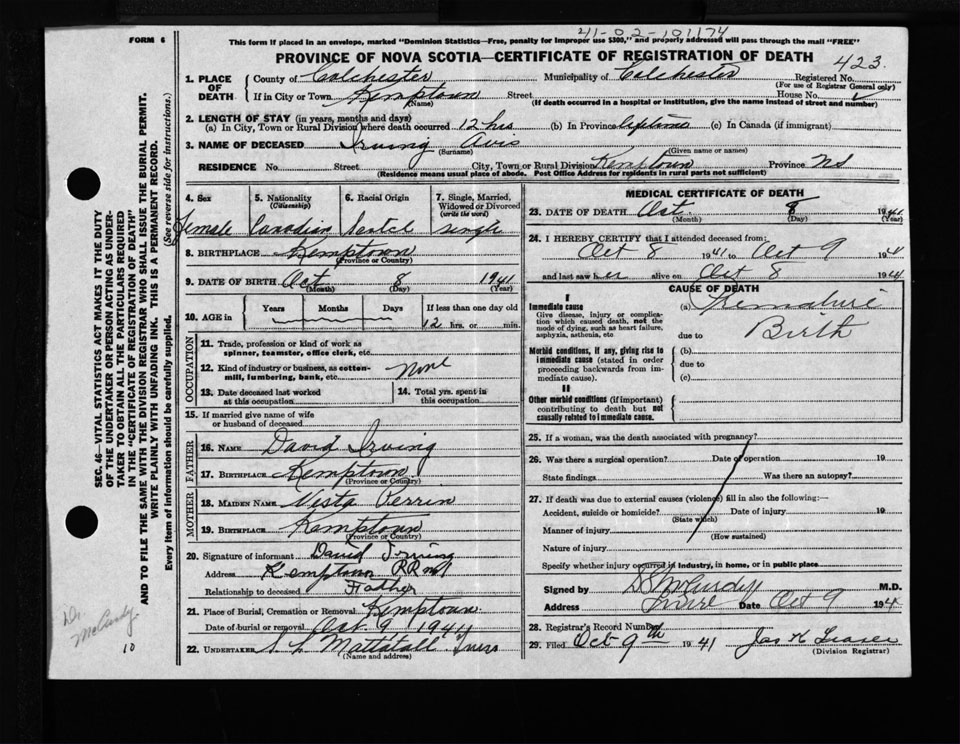 41-02-101174
FORM 6
This form if placed in an envelope, marked "Dominion Statistics—Free, penalty for improper use $300," and properly addressed will pass through the mail "FREE"
PROVINCE OF NOVA SCOTIA—CERTIFICATE OF REGISTRATION OF DEATH 423
1. PLACE OF DEATH County of Colchester Municipality of Colchester Registered No.
(For use of Registrar General only)
If in City or Town Kemptown Street House No.
(Name) (If death occurred in a hospital or institution, give the name instead of street and number)
2. LENGTH OF STAY (in years, months and days)
(a) In City, Town or Rural Division where death occurred 12 hrs (b) In Province lifetime (c) In Canada (if immigrant)
3. NAME OF DECEASED Irving Avis
(Surname) (Given name or names)
RESIDENCE No. Street City, Town or Rural Division Kemptown Province NS
(Residence means usual place of abode. Post Office Address for residents in rural parts not sufficient)
4. Sex 5. Nationality (Citizenship) 6. Racial Origin 7. Single, Married, Widowed or Divorced (write the word)
Female Canadian single
8. BIRTHPLACE Kemptown
(Province or Country)
9. DATE OF BIRTH Oct 8 1941
(Month) (Day) (Year)
10. AGE in Years Months Days If less than one day old
12 hrs. or min.
OCCUPATION
11. Trade, profession or kind of work as spinner, teamster, office clerk, etc.
12. Kind of industry or business, as cotton-mill, lumbering, bank, etc. None
13. Date deceased last worked at this occupation 14. Total yrs. spent in this occupation
15. If married give name of wife or husband of deceased
FATHER
16. NAME David Irving
17. BIRTHPLACE Kemptown
(Province or Country)
MOTHER
18. MAIDEN NAME Vesta Perrin
19. BIRTHPLACE Kemptown
(Province or Country)
20. Signature of informant David Irving
Address Kemptown RR no1
Relationship to deceased Father
21. Place of Burial, Cremation or Removal Kemptown
Date of burial or removal Oct. 9 1941
22. UNDERTAKER Mattatall
(Name and address)
MEDICAL CERTIFICATE OF DEATH
23. DATE OF DEATH Oct. 8 1941
(Month) (Day) (Year)
24. I HEREBY CERTIFY that I attended deceased from:
Oct 8 1941 to Oct 9 1941
and last saw her alive on Oct 8 1941
CAUSE OF DEATH
I
Immediate cause (a) Premature Birth
Give disease, injury or complication which caused death, not the mode of dying, such as heart failure, asphyxia, asthenia, etc
due to
Morbid conditions, if any, giving rise to immediate cause (stated in order proceeding backwards from immediate cause). (b)
due to
(c)
II
Other morbid conditions (if important) contributing to death but not causally related to immediate cause.
25. If a woman, was the death associated with pregnancy?
26. Was there a surgical operation? Date of operation 19
State findings Was there an autopsy?
27. If death was due to external causes (violence) fill in also the following:—
Accident, suicide or homicide? Date of injury 19
(State which)
Manner of injury
(How sustained)
Nature of injury
Specify whether injury occurred in industry, in home, or in public place
Signed by McCurdy M.D.
Address Date Oct 9 194
28. Registrar's Record Number
29. Filed Oct 9th 1941 Jas K Fraser
(Division Registrar)
SEC. 46—VITAL STATISTICS ACT MAKES IT THE DUTY
OF THE UNDERTAKER OR PERSON ACTING AS UNDERTAKER TO OBTAIN ALL THE PARTICULARS REQUIRED
IN THE "CERTIFICATE OF REGISTRATION OF DEATH"
AND TO FILE THE SAME WITH THE DIVISION REGISTRAR WHO SHALL ISSUE THE BURIAL PERMIT.
WRITE PLAINLY WITH UNFADING INK. THIS IS A PERMANENT RECORD.
Every item of information should be carefully supplied. (See reverse side for instructions.)
Dr McCurdy
10